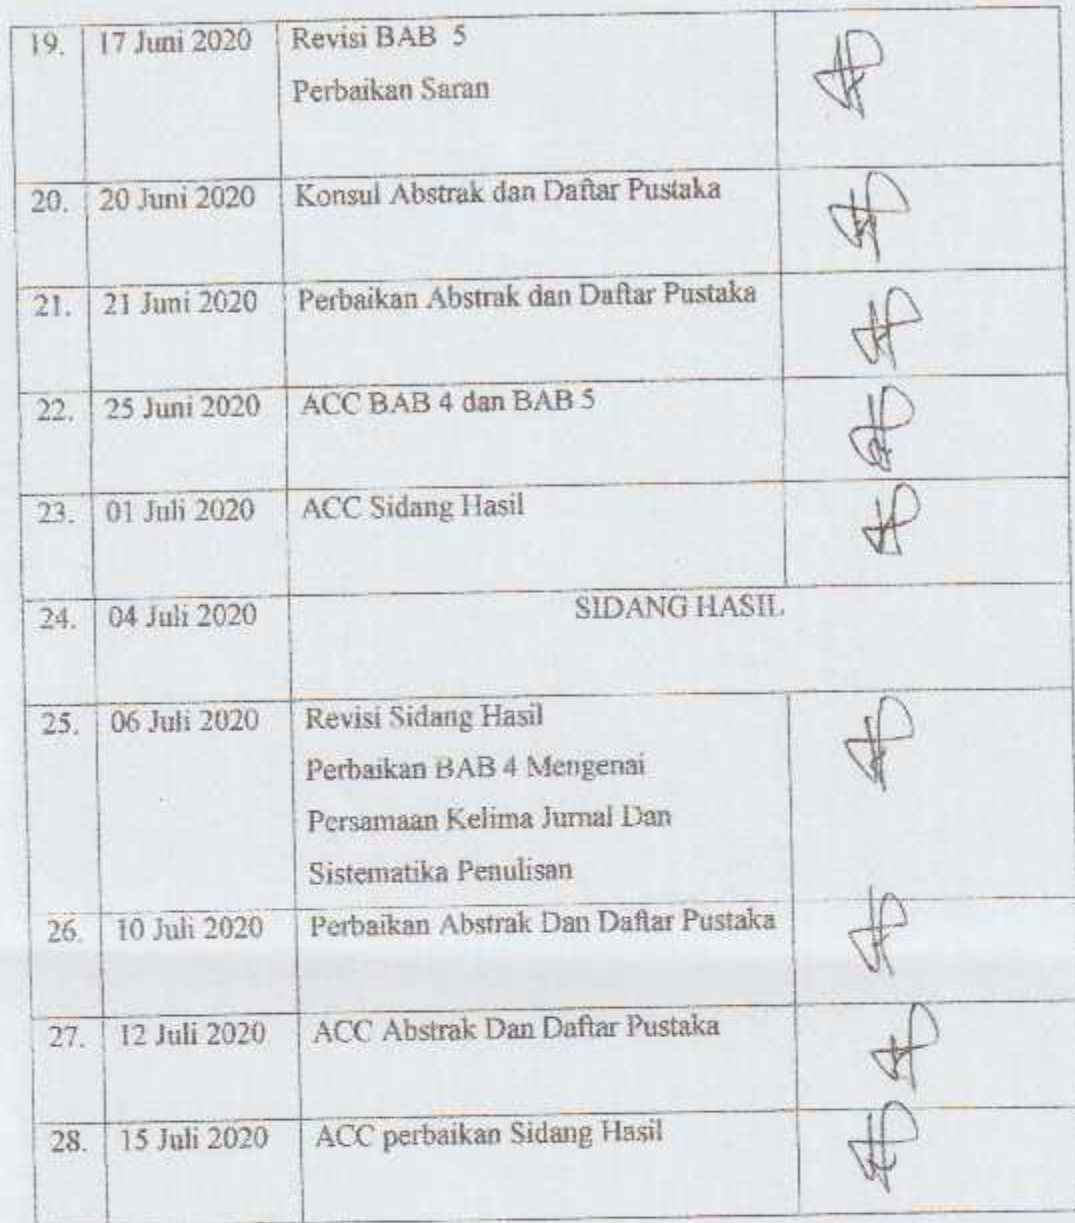 19. 17 Juni 2020 Revisi BAB 5
Perbaikan Saran
20. 20 Juni 2020 Konsul Abstrak dan Daftar Pustaka
21. 21 Juni 2020 Perbaikan Abstrak dan Daftar Pustaka
22. 25 Juni 2020 ACC BAB 4 dan BAB 5
23. 01 Juli 2020 ACC Sidang Hasil
24. 04 Juli 2020 SIDANG HASIL
25. 06 Juli 2020 Revisi Sidang Hasil
Perbaikan BAB 4 Mengenai
Persamaan Kelima Jurnal Dan
Sistematika Penulisan
26. 10 Juli 2020 Perbaikan Abstrak Dan Daftar Pustaka
27. 12 Juli 2020 ACC Abstrak Dan Daftar Pustaka
28. 15 Juli 2020 ACC perbaikan Sidang Hasil